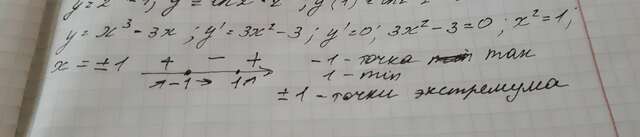 y = x³ - 3x ; y' = 3x² - 3 ; y' = 0 ; 3x² - 3 = 0 ; x² = 1 ;
x = ± 1 + - + - 1 - точка max
↗ - 1 ↘ 1 ↗ 1 - min
± 1 - точки экстремума